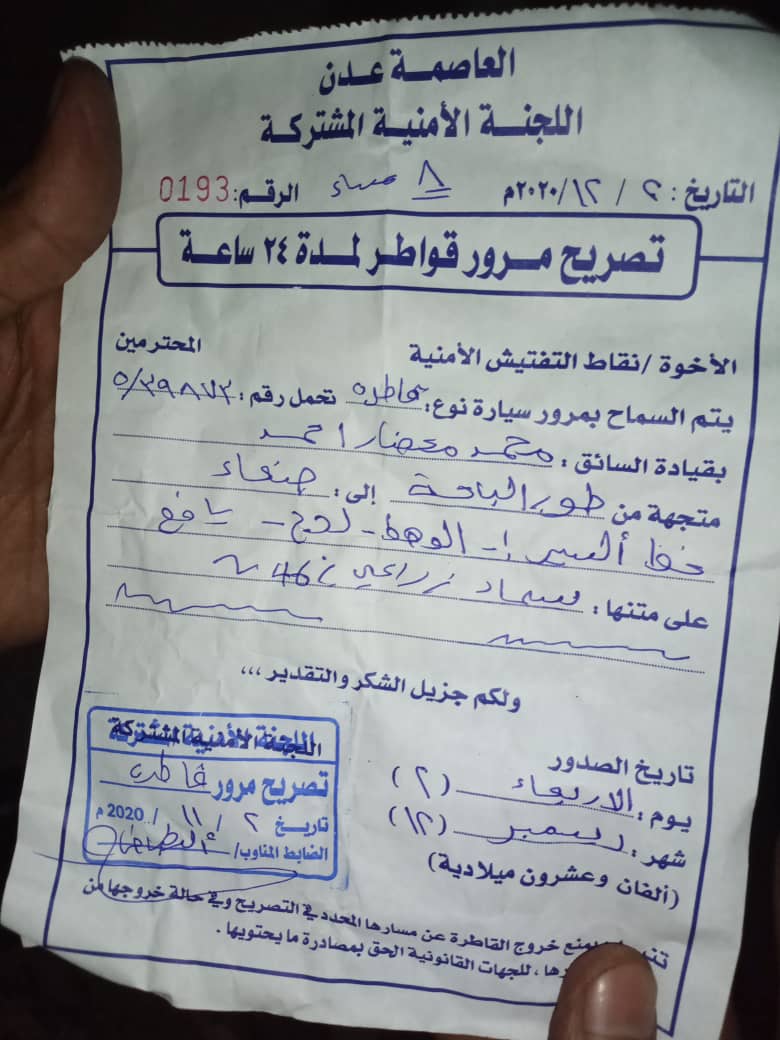 العاصمة عدن
اللجنة الأمنية المشتركة
التاريخ: ٢ / ١٢ / ٢٠٢٠م ٨ مساء الرقم: 0193
تصريح مرور قواطر لمدة ٢٤ ساعة
الأخوة / نقاط التفتيش الأمنية المحترمين
يتم السماح بمرور سيارة نوع: قاطرة تحمل رقم: ٥/٣٩٨٧٣
بقيادة السائق: محمد معضار احمد
متجهة من طور الباحة إلى: صنعاء
خط السير :- الوهط - لحج - يافع
على متنها: سماد زراعي 46
ولكم جزيل الشكر والتقدير ,,,
تاريخ الصدور
يوم: الاربعاء (٢)
شهر: ديسمبر (١٢)
(ألفان وعشرون ميلادية)
اللجنة الأمنية المشتركة
تصريح مرور قاطرة
تاريخ ٢ / ١١ / 2020 م
الضابط المناوب/
يمنع خروج القاطرة عن مسارها المحدد في التصريح وفي حالة خروجها من
، للجهات القانونية الحق بمصادرة ما يحتويها .